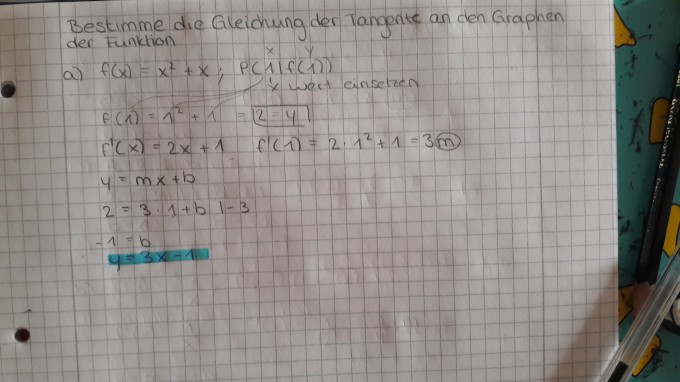 Bestimme die Gleichung der Tangente an den Graphen
der Funktion
x y
a) f(x) = x² + x ; P(1|f(1))
x Wert einsetzen
f(1) = 1² + 1 = 2 = y
f'(x) = 2x + 1 f'(1) = 2 · 1² + 1 = 3 m
y = mx + b
2 = 3 · 1 + b | - 3
-1 = b
y = 3x - 1